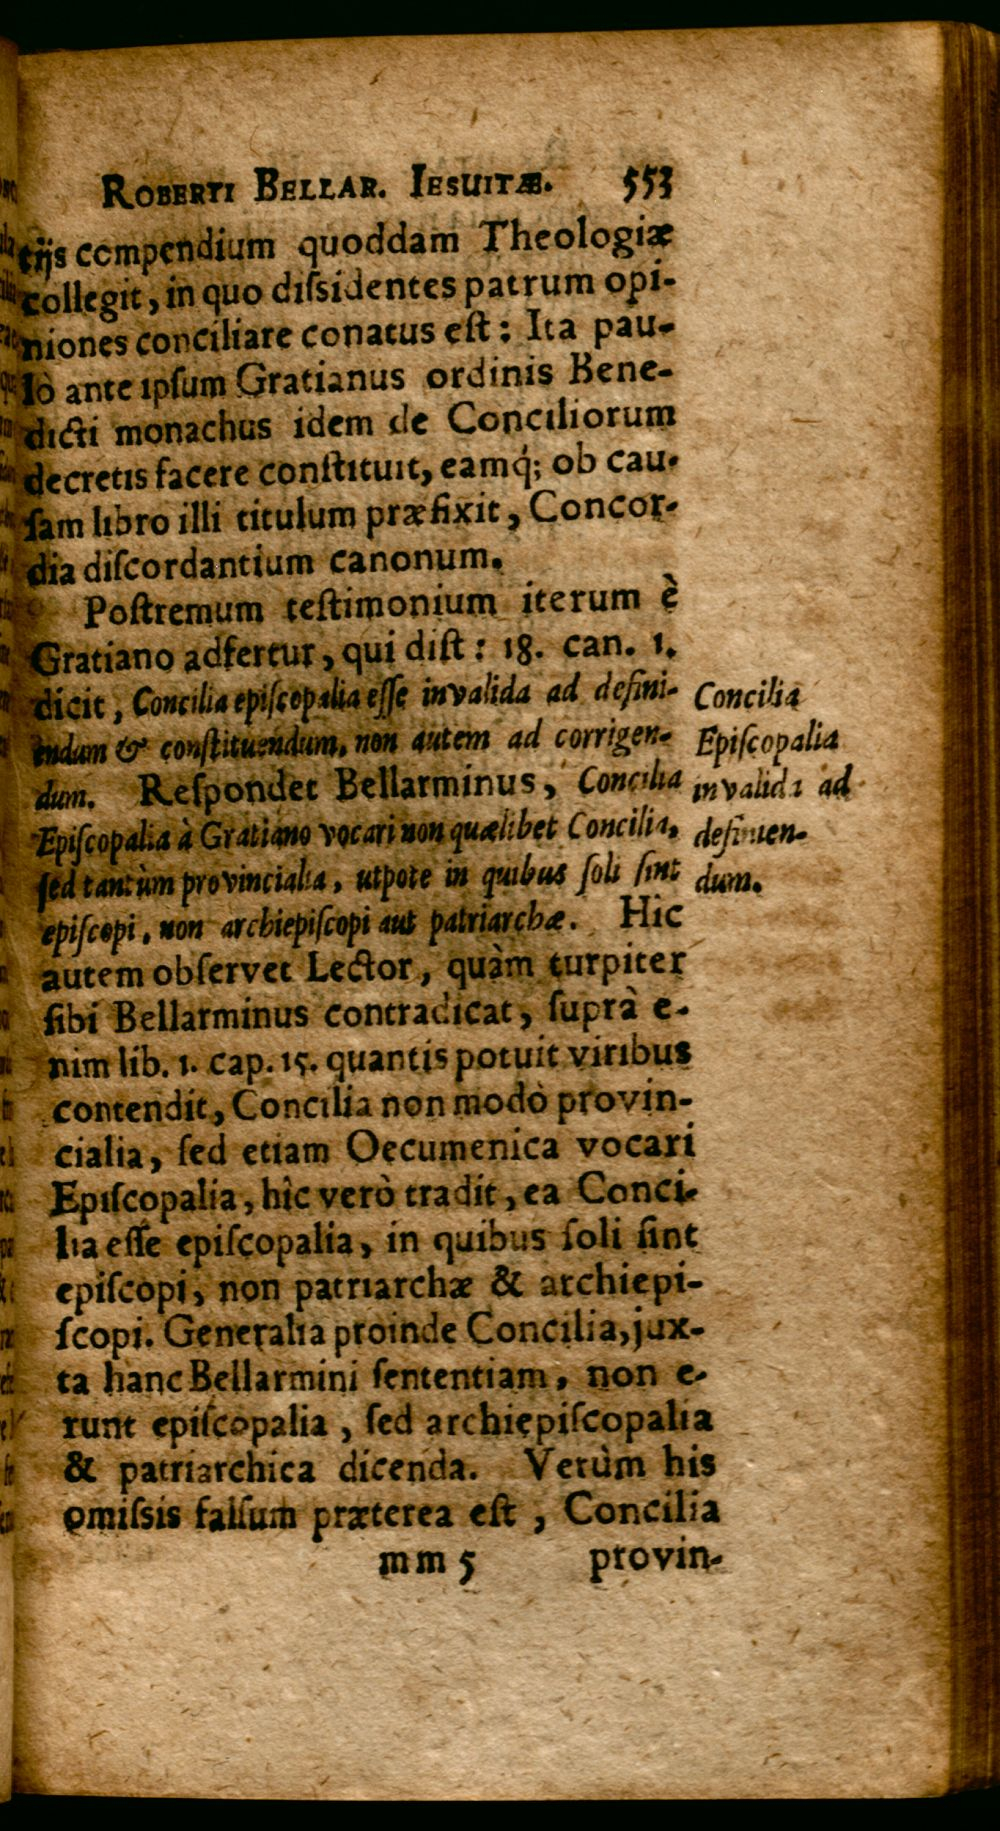 ROBERTI BELLAR. IESUITÆ. 553
tijs compendium quoddam Theologiæ
collegit, in quo dissidentes patrum opi-
niones conciliare conatus est: Ita pau-
lò ante ipsum Gratianus ordinis Bene-
dicti monachus idem de Conciliorum
decretis facere constituit, eamq́; ob cau-
sam libro illi titulum præfixit, Concor-
dia discordantium canonum.
Postremum testimonium iterum è
Gratiano adfertur, qui dist: 18. can. 1.
dicit, Concilia episcopalia esse invalida ad defini-
endum & constituendum, non autem ad corrigen-
dum. Respondet Bellarminus, Concilia
Episcopalia à Gratiano vocari non quælibet Concilia,
sed tantùm provincialia, utpote in quibus soli sint
episcopi, non archiepiscopi aut patriarchæ. Hîc
autem observet Lector, quàm turpiter
sibi Bellarminus contradicat, suprà e-
nim lib. 1. cap. 15. quantis potuit viribus
contendit, Concilia non modò provin-
cialia, sed etiam Oecumenica vocari
Episcopalia, hîc verò tradit, ea Conci-
lia esse episcopalia, in quibus soli sint
episcopi, non patriarchæ & archiepi-
scopi. Generalia proinde Concilia, jux-
ta hanc Bellarmini sententiam, non e-
runt episcopalia, sed archiepiscopalia
& patriarchica dicenda. Verùm his
omissis falsum præterea est, Concilia
mm 5 provin-
Concilia
Episcopalia
invalida ad
definien-
dum.